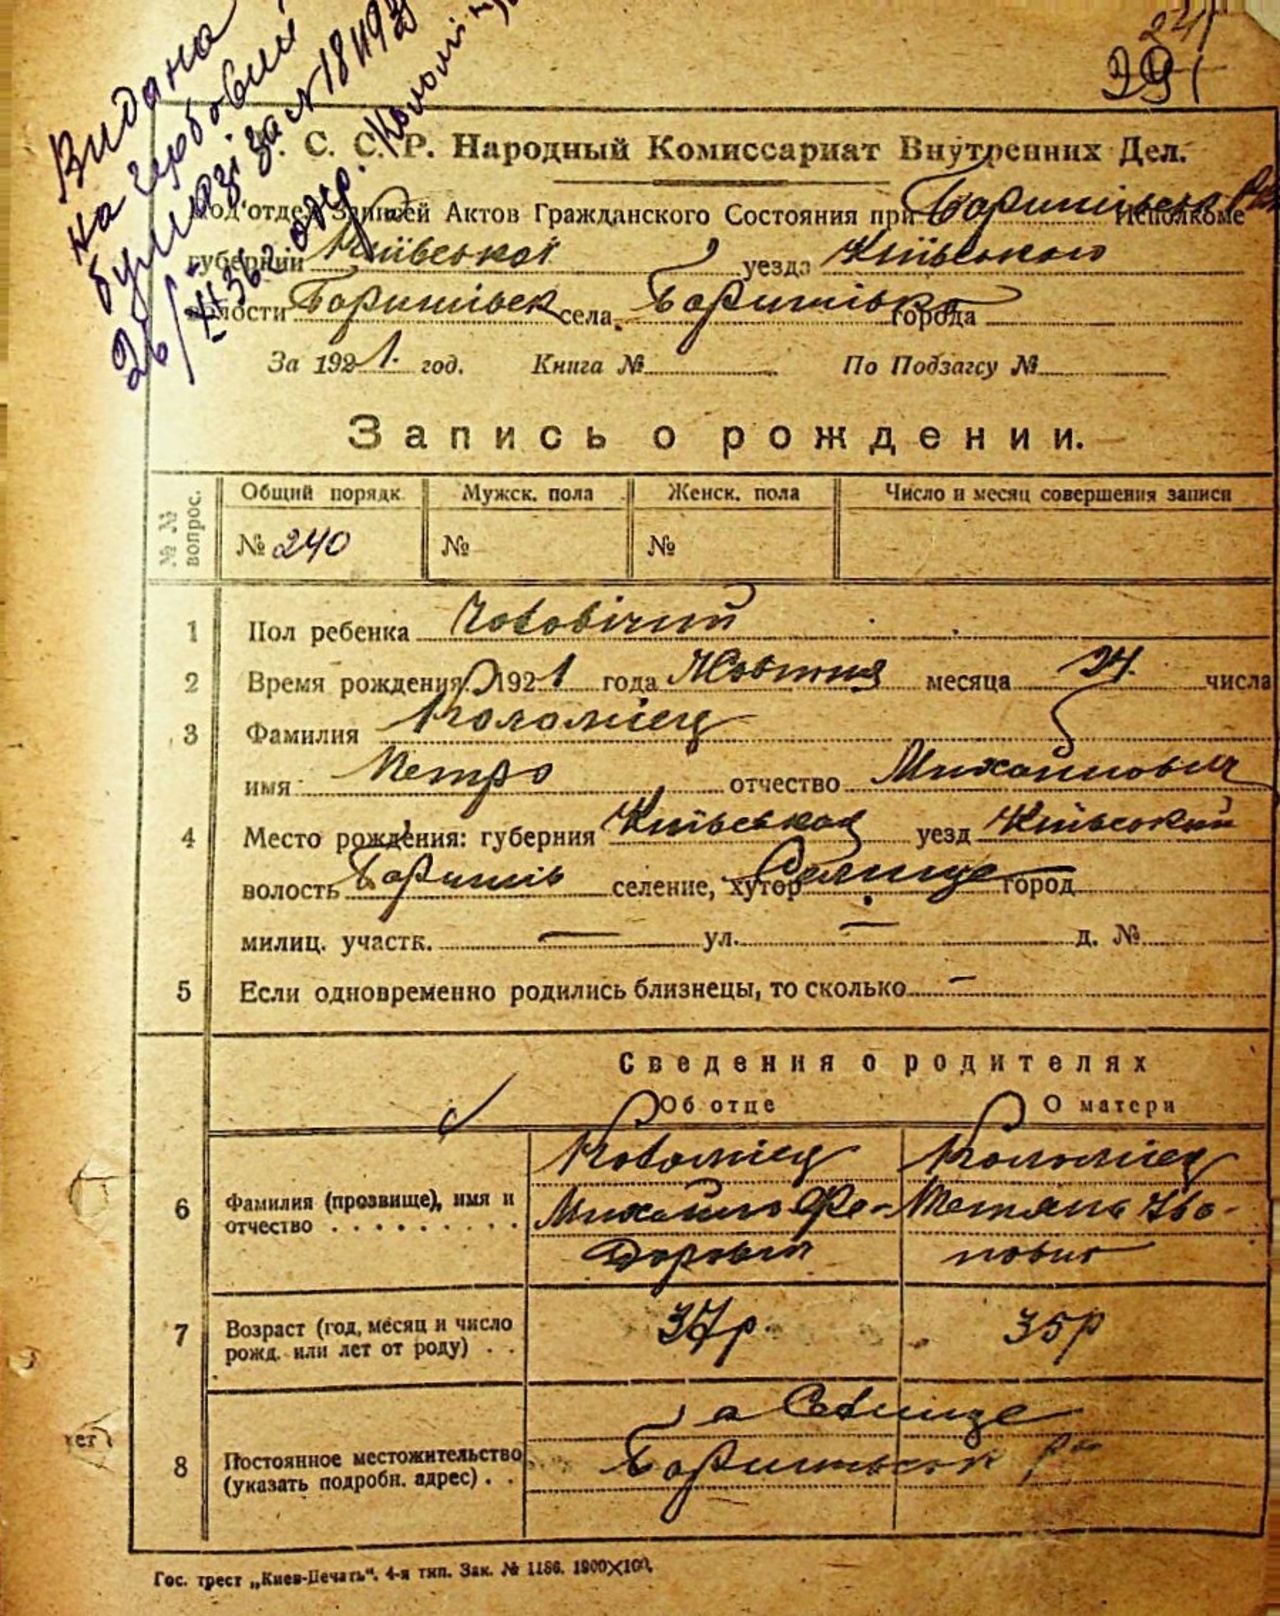 241
Видана
на гербовий
бумазі за № 181193
26/XII 36 р. одер. Коломієц
. С. С. Р. Народный Комиссариат Внутренних Дел.
Под'отдел Записей Актов Гражданского Состояния при Баришівськ Исполкоме
губернии Київської уезда Київського
волости Баришівськ села Баришівка города
За 1921. год. Книга № По Подзагсу №
Запись о рождении.
№№ вопрос. Общий порядк. Мужск. пола Женск. пола Число и месяц совершения записи
№ 240 № №
1 Пол ребенка Чоловічий
2 Время рождения 1921 года Жовтня месяца 24. числа
3 Фамилия Коломієц
имя Петро отчество Михайлович
4 Место рождения: губерния Київська уезд Київський
волость Баришів селение, хутор Селище город
милиц. участк. — ул. — д. №
5 Если одновременно родились близнецы, то сколько —
Сведения о родителях
Об отце О матери
6 Фамилия (прозвище), имя и отчество Коломієц Михайло Федоров Коломієц Тетяна Іва-новна
7 Возраст (год, месяц и число рожд. или лет от роду) 37р. 35р
8 Постоянное местожительство (указать подробн. адрес) Селище
Баришівськ
Гос. трест „Киев-Печать“. 4-я тип. Зак. № 1186. 1900×100.